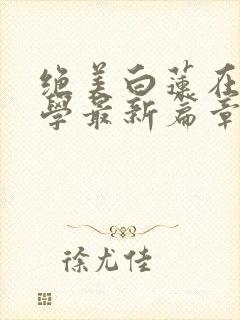 绝美白莲在
學最新篇章
徐尤佳